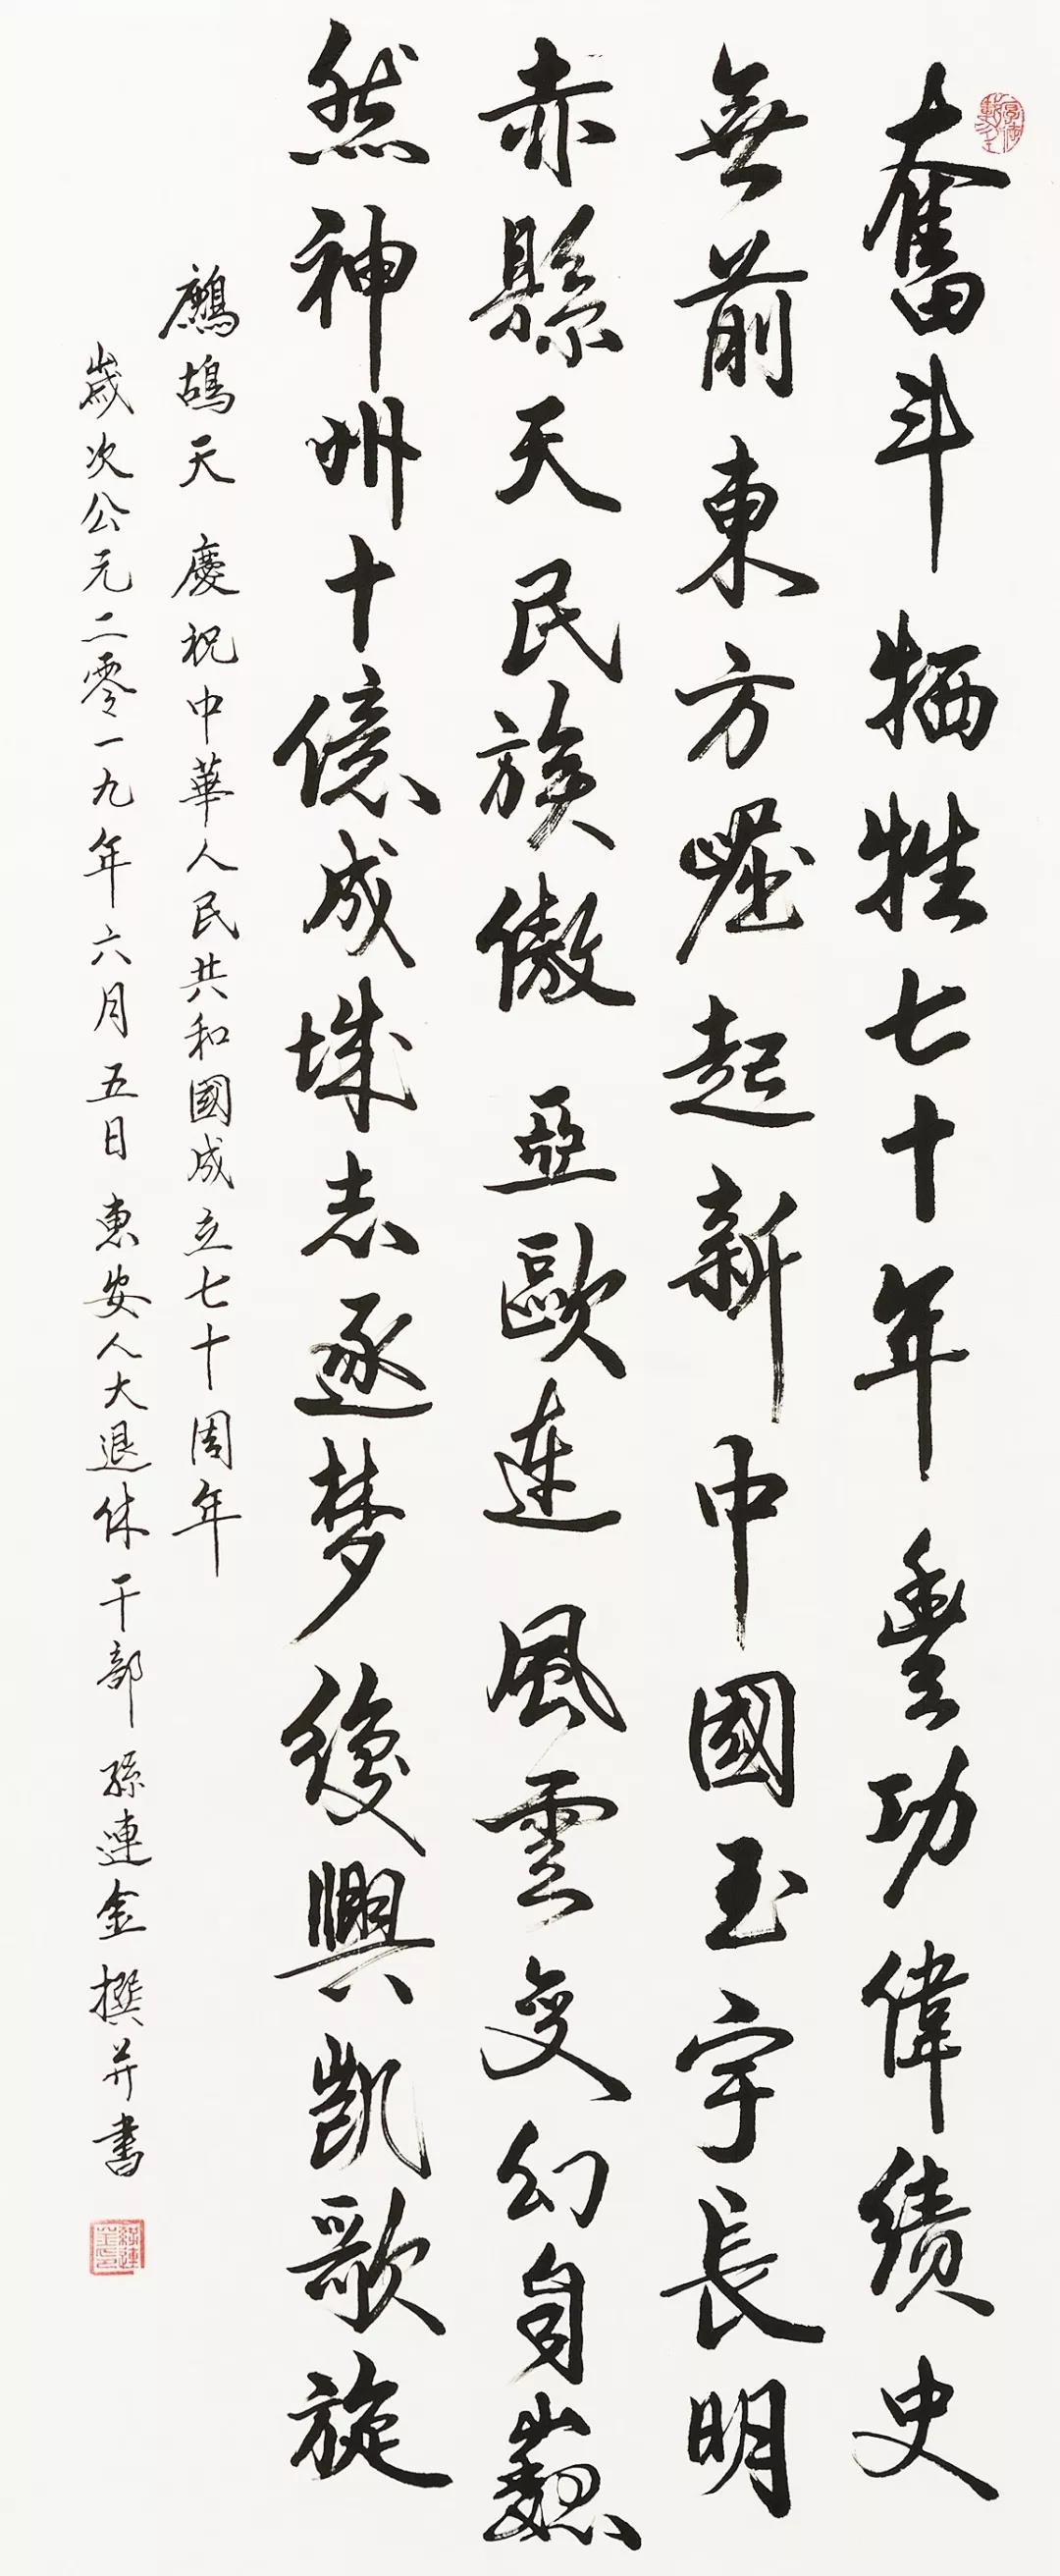 奮斗犧牲七十年豐功偉績史
無前東方崛起新中國玉宇長明
赤縣天民族傲亞歐連風雲變幻自巍
然神州十億成城志逐梦復興凱歌旋
鷓鴣天 慶祝中華人民共和國成立七十周年
歲次公元二零一九年六月五日惠安人大退休干部孫連金撰并書